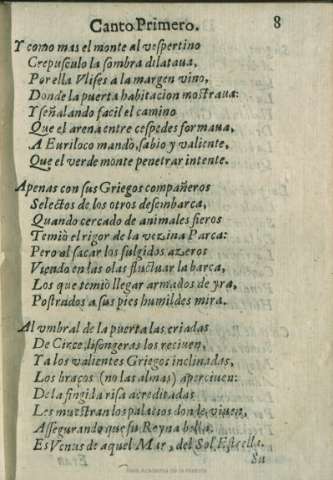 Canto Primero. 8
Y como mas el monte al vespertino
Crepusculo la sombra dilataua,
Por ella Vlises a la margen vino,
Donde la puerta habitacion mostraua:
Y señalando facil el camino
Que el arena entre cespedes formaua,
A Euriloco mandò, sabio y valiente,
Que el verde monte penetrar intente.
Apenas con sus Griegos compañeros
Selectos de los otros desembarca,
Quando cercado de animales fieros
Temiò el rigor de la vezina Parca:
Pero al sacar los fulgidos azeros
Viendo en las olas fluctuar la barca,
Los que temiò llegar armados de yra,
Postrados a sus pies humildes mira.
Al vmbral de la puerta las criadas
De Circe, lisongeras los reciuen,
Y a los valientes Griegos inclinadas,
Los braços (no las almas) aperciuen:
De la fingida risa acreditadas
Les muestran los palacios donde viuen,
Assegurando que su Reyna bella,
Es Venus de aquel Mar, del Sol Estrella.
Su
Real Academia de la Historia